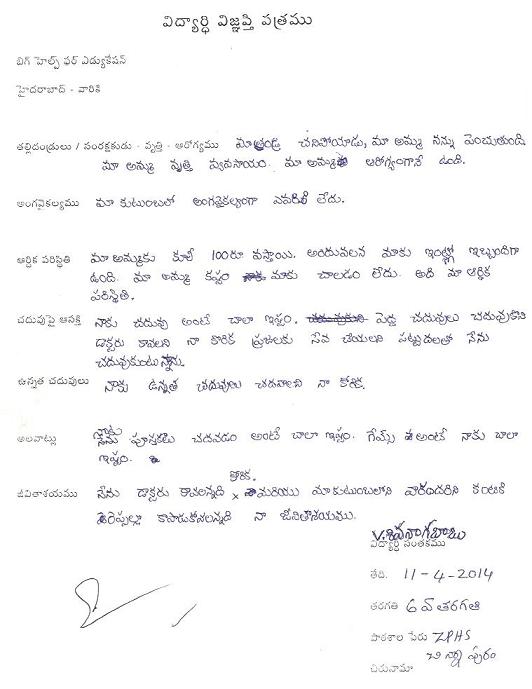 విద్యార్ధి విజ్ఞప్తి పత్రము
బిగ్ హెల్ప్ ఫర్ ఎడ్యుకేషన్
హైదరాబాద్ - వారికి
తల్లిదండ్రులు / సంరక్షకుడు - వృత్తి - ఆరోగ్యము మా తండ్రి చనిపోయాడు, మా అమ్మ నన్ను పెంచుతుంది
మా అమ్మ వృత్తి వ్యవసాయం. మా అమ్మ ఆరోగ్యంగానే ఉంది.
అంగవైకల్యము మా కుటుంబంలో అంగవైకల్యంగా ఎవరికీ లేదు.
ఆర్ధిక పరిస్థితి మా అమ్మకు కూలీ 100రూ వస్తాయి. అందువలన మాకు ఇంట్లో ఇబ్బందిగా
ఉంది. మా అమ్మ కష్టం మాకు చాలడం లేదు. అది మా ఆర్ధిక
పరిస్థితి.
చదువుపై ఆసక్తి నాకు చదువు అంటే చాలా ఇష్టం. పెద్ద చదువులు చదువుకొని
డాక్టరు కావలని నా కొరిక ప్రజలకు సేవ చేయలని పట్టుదలతో నేను
చదువుకుంటున్నాను.
ఉన్నత చదువులు నాకు ఉన్నత చదువులు చదవాలని నా కోరిక.
అలవాట్లు నాకు పూస్తకాలు చదవడం అంటే చాలా ఇష్టం. గేమ్స్ అంటే నాకు చాలా
ఇష్టం.
జీవితాశయము నేను డాక్టరు కావలన్నది కోరిక. మరియు మా కుటుంబంలోని వారందరిని కంటికి
రెప్పల్లా కాపాడుకోవలన్నది నా జీవితాశయము.
V. శివనాగబాబు
విద్యార్ధి సంతకము
తేది. 11-4-2014
తరగతి 6వ తరగతి
పాఠశాల పేరు ZPHS
చిరునామా